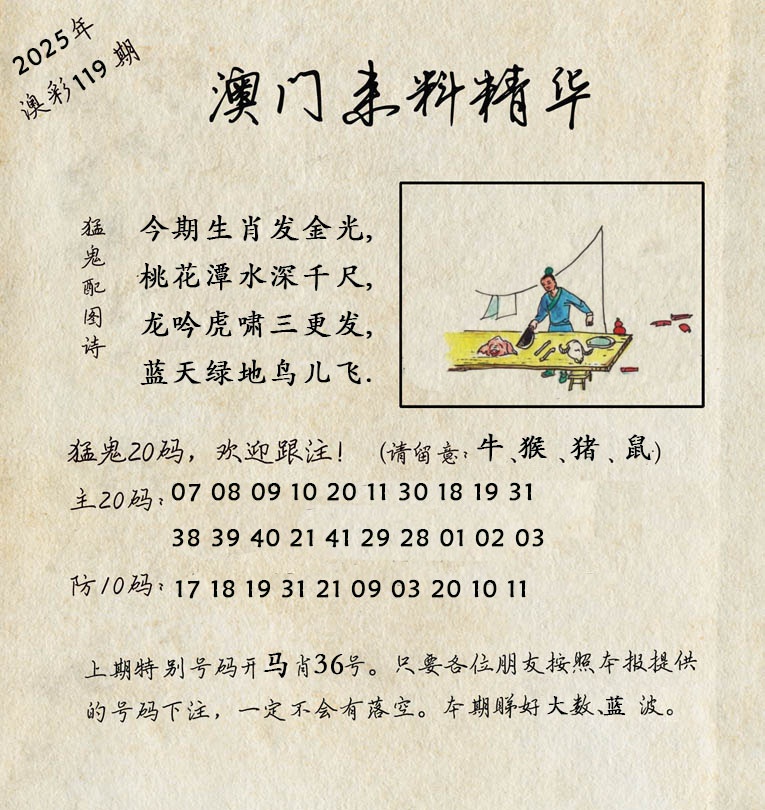 2025年
澳彩119期
澳门来料精华
猛鬼配图诗
今期生肖发金光,
桃花潭水深千尺,
龙吟虎啸三更发,
蓝天绿地鸟儿飞.
猛鬼20码，欢迎跟注！（请留意：牛、猴、猪、鼠）
主20码：07 08 09 10 20 11 30 18 19 31
38 39 40 21 41 29 28 01 02 03
防10码：17 18 19 31 21 09 03 20 10 11
上期特别号码开马肖36号。只要各位朋友按照本报提供
的号码下注，一定不会有落空。本期睇好大数、蓝 波。